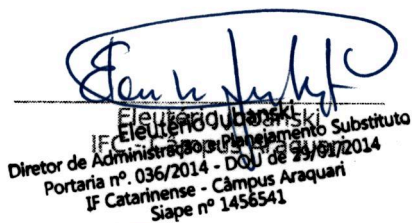 Eleutério Jubanski
IFC - Campus Araquari
Eleutério Jubanski
Diretor de Administração e Planejamento Substituto
Portaria nº. 036/2014 - DOU de 29/01/2014
IF Catarinense - Câmpus Araquari
Siape nº 1456541